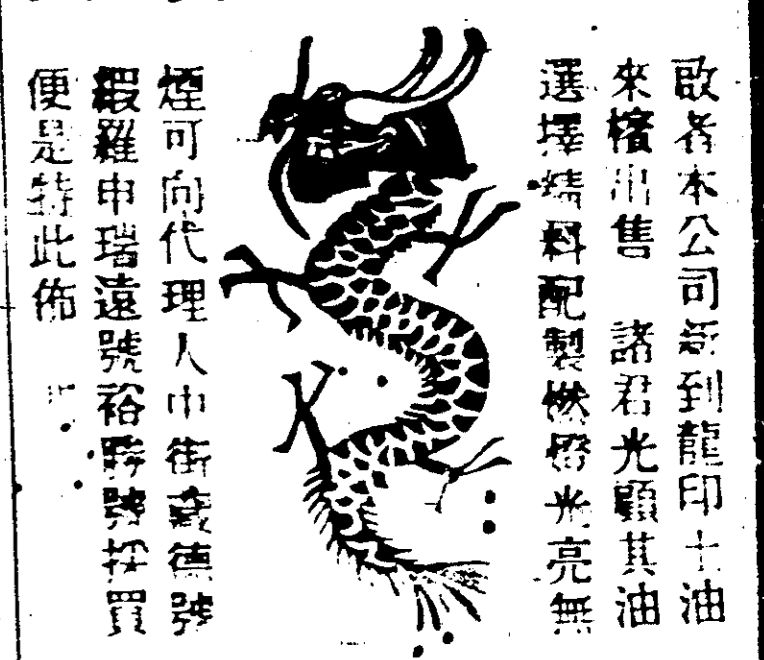 啟者本公司新到龍印土油
來檳出售 諸君光顧其油
選擇精料配製燃燈光亮無
煙可向代理人中街 德號
羅申瑞遠號裕 號採買
便是特此佈